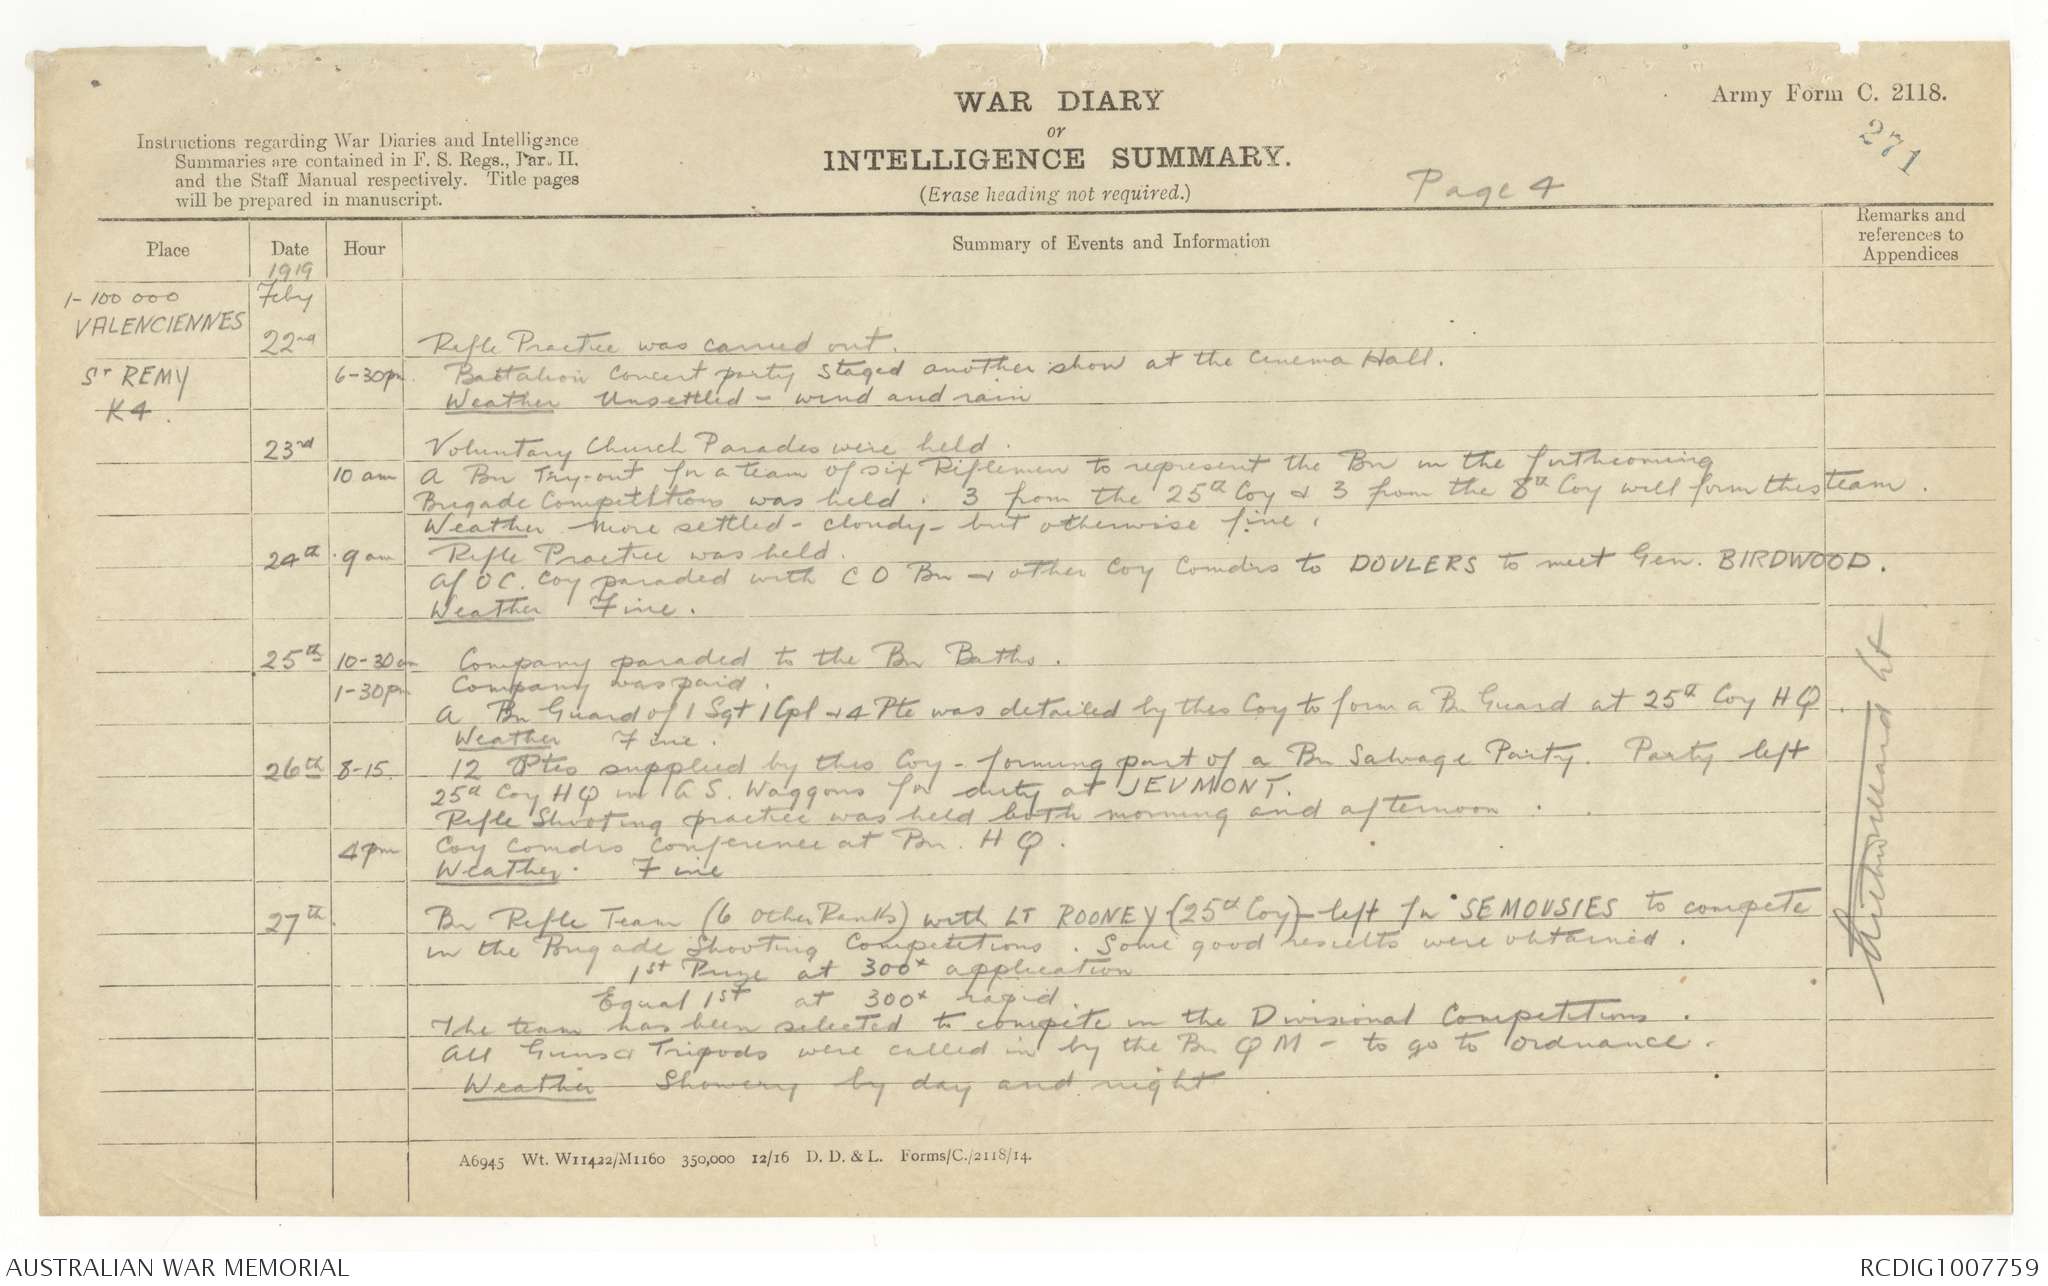 WAR DIARY
or
INTELLIGENCE SUMMARY.
(Erase heading not required.)
Army Form C. 2118.
271
Page 4
Instructions regarding War Diaries and Intelligence
Summaries are contained in F. S. Regs., Part II.
and the Staff Manual respectively. Title pages
will be prepared in manuscript.
Place Date Hour Summary of Events and Information Remarks and references to Appendices
1919
1-100 000 Feby
VALENCIENNES
22nd Rifle Practice was carried out.
ST REMY 6-30pm. Battalion Concert party staged another show at the Cinema Hall.
K4. Weather Unsettled - wind and rain
23rd Voluntary Church Parades were held.
10 am A Bn Try-out for a team of six Riflemen to represent the Bn in the forthcoming
Brigade Competitions was held. 3 from the 25th Coy & 3 from the 8th Coy will form this team.
Weather - more settled - cloudy - but otherwise fine.
24th 9 am Rifle Practice was held.
A/OC. Coy paraded with C O Bn & other Coy Comdrs to DOULERS to meet Gen. BIRDWOOD.
Weather Fine.
25th 10-30am Company paraded to the Bn Baths.
1-30pm Company was paid.
A Bn Guard of 1 Sgt 1 Cpl & 4 Pte was detailed by this Coy to form a Bn Guard at 25th Coy HQ.
Weather Fine.
26th 8-15. 12 Ptes supplied by this Coy - forming part of a Bn Salvage Party. Party left
25th Coy HQ in G.S. Waggons for duty at JEUMONT.
Rifle Shooting practice was held both morning and afternoon.
4pm Coy Comdrs Conference at Bn. HQ.
Weather. Fine
27th. Bn Rifle Team (6 Other Ranks) with LT ROONEY (25th Coy) - left for SEMOUSIES to compete
in the Brigade Shooting Competitions. Some good results were obtained.
1st Prize at 300x application
Equal 1st at 300x rapid.
The team has been selected to compete in the Divisional Competitions.
All Guns & Tripods were called in by the Bn QM - to go to Ordnance.
Weather Showery by day and night
Lt
A6945 Wt. W11422/M1160 350,000 12/16 D. D. & L. Forms/C./2118/14.
AUSTRALIAN WAR MEMORIAL
RCDIG1007759